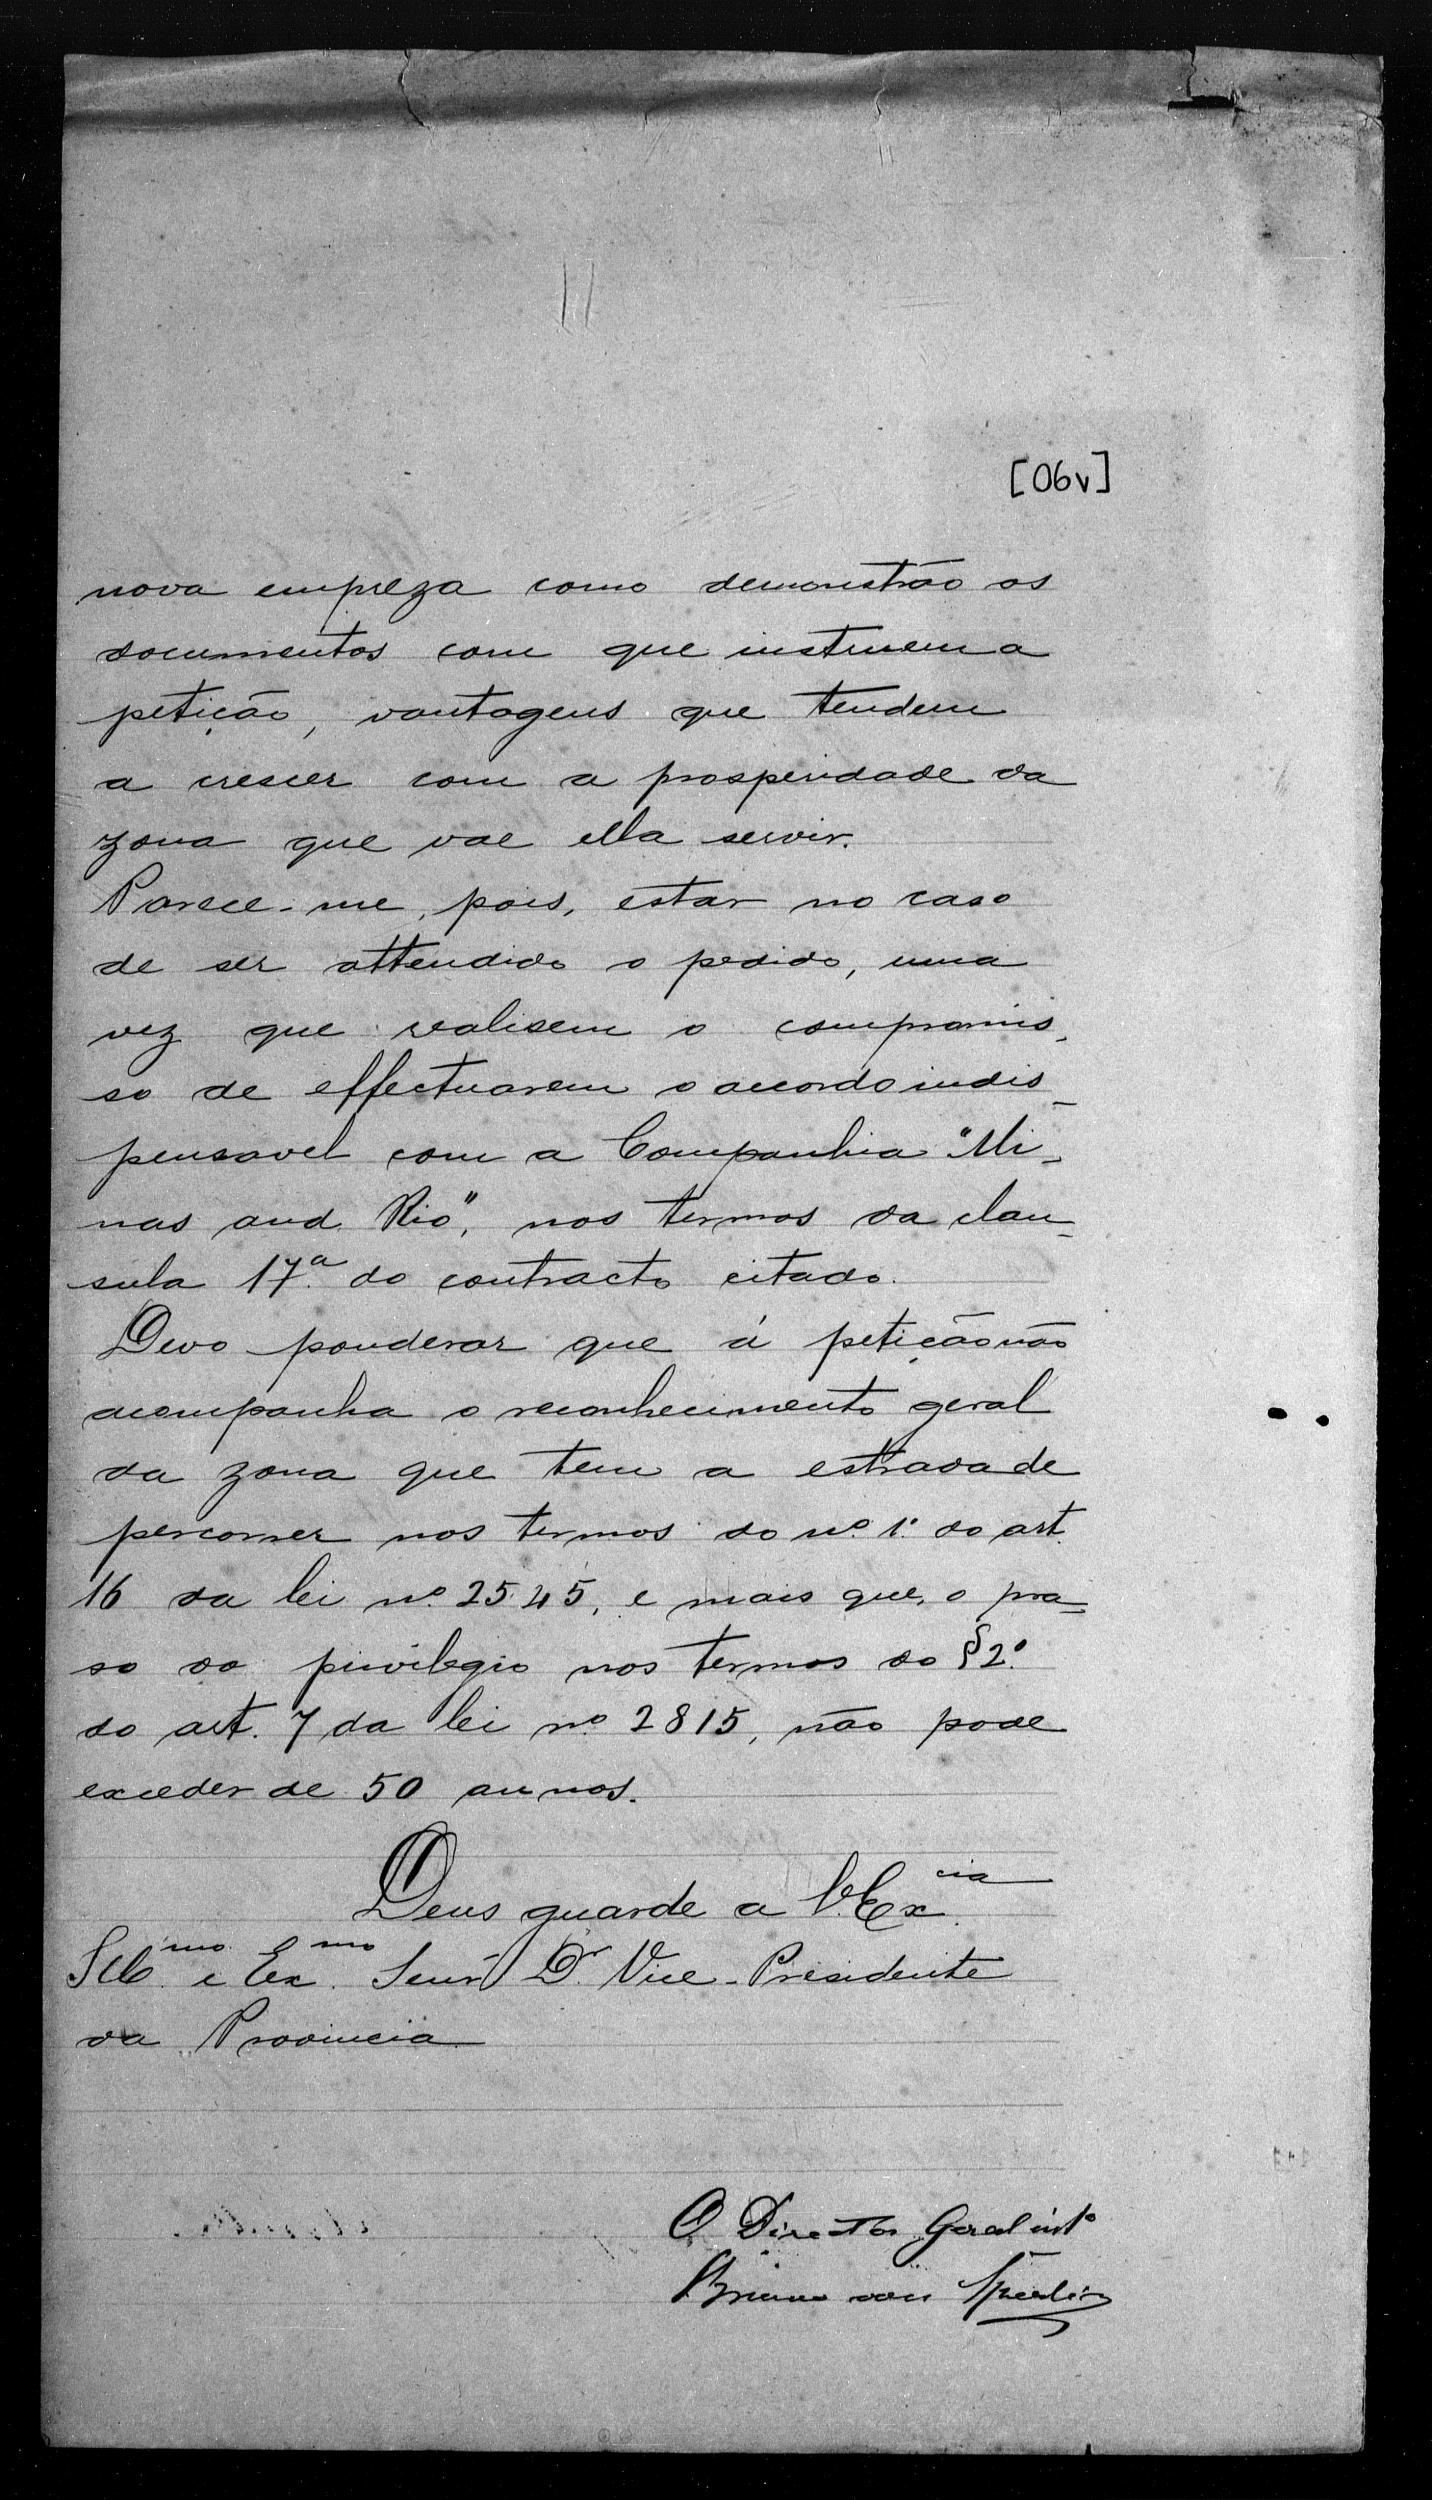 [06v]
nova empreza como demonstrão os
documentos com que instruem a
petição, vantagens que tendem
a crescer com a prosperidade da
zona que vae ella servir.
Parece-me, pois, estar no caso
de ser attendido o pedido, uma
vez que realisem o compromis-
so de effectuarem o accordo indis-
pensavel com a Companhia "Mi-
nas and Rio", nos termos da clau-
sula 17ª do contracto citado.
Devo ponderar que á petição não
acompanha o reconhecimento geral
da zona que tem a estrada de
percorrer nos termos do nº 1º do art.
16 da lei nº 2545, e mais que, o pra-
so do privilegio nos termos do § 2º
do art. 7 da lei nº 2815, não pode
exceder de 50 annos.
Deus guarde a V. Ex.cia
Illmo. e Exmo. Senr. Dr. Vice-Presidente
da Provincia
O Director Geral into
Bruno von Sperling